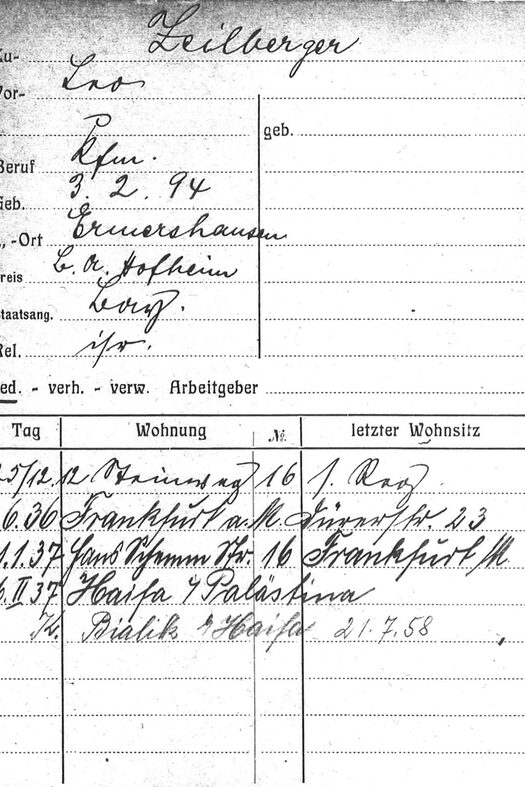 Zu- Zeilberger
Vor- Leo
geb.
Beruf Kfm.
Geb. 3. 2. 94
-Ort Ermershausen
reis B. A. Hofheim
Staatsang. Bay.
Rel. isr.
led. - verh. - verw. Arbeitgeber
Tag Wohnung № letzter Wohnsitz
25/12. 12 Steinweg 16 s. Reg.
6.36 Frankfurt a. M. Dürerstr. 23
1.1.37 Hans Schemm Str. 16 Frankfurt /M
6. II 37 Haifa Palästina
K. Bialik b/ Haifa 21.7.58